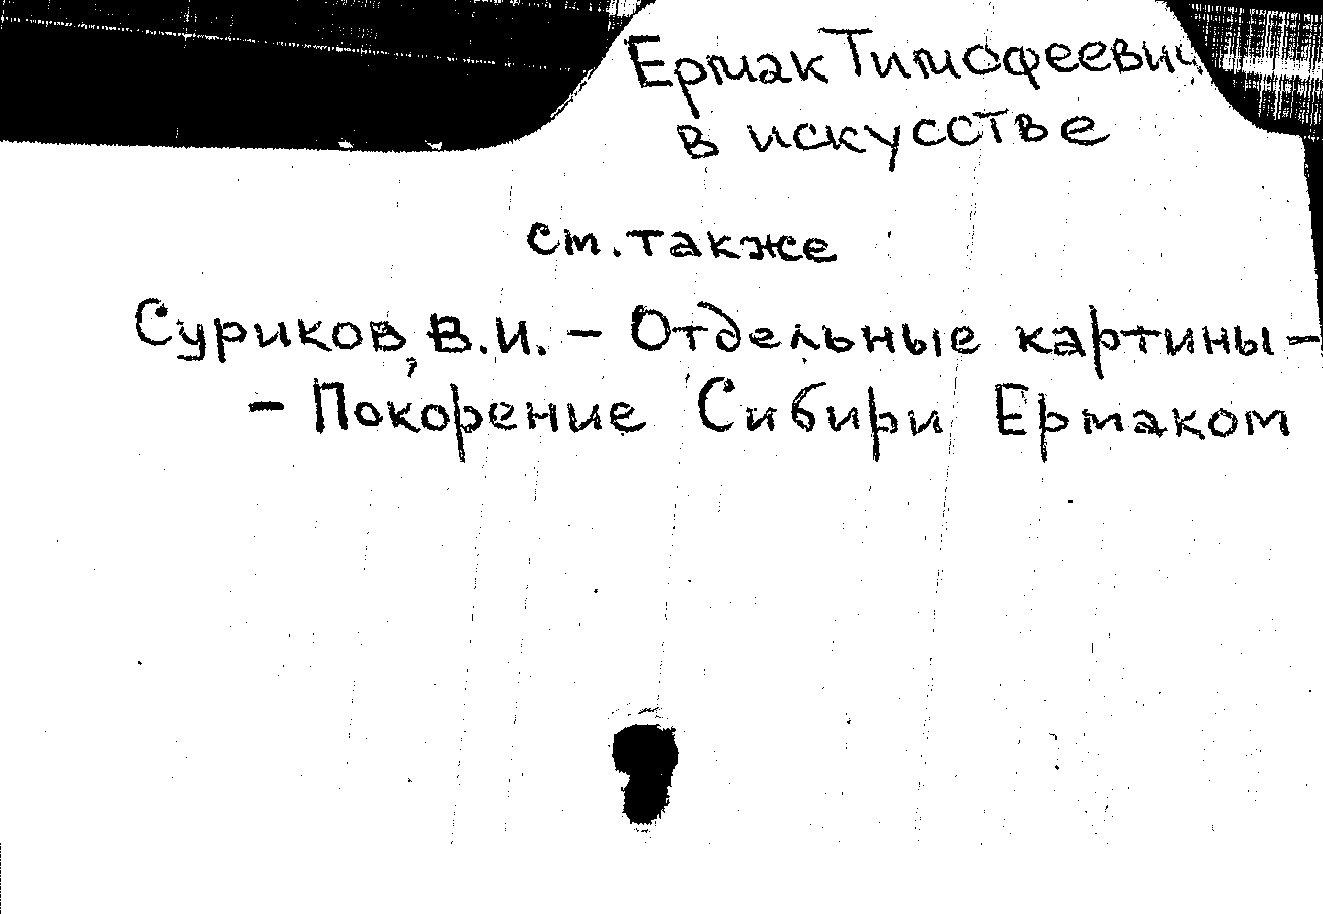 Ермак Тимофеевич
в искусстве
см. также
Суриков, В.И. – Отдельные картины –
– Покорение Сибири Ермаком